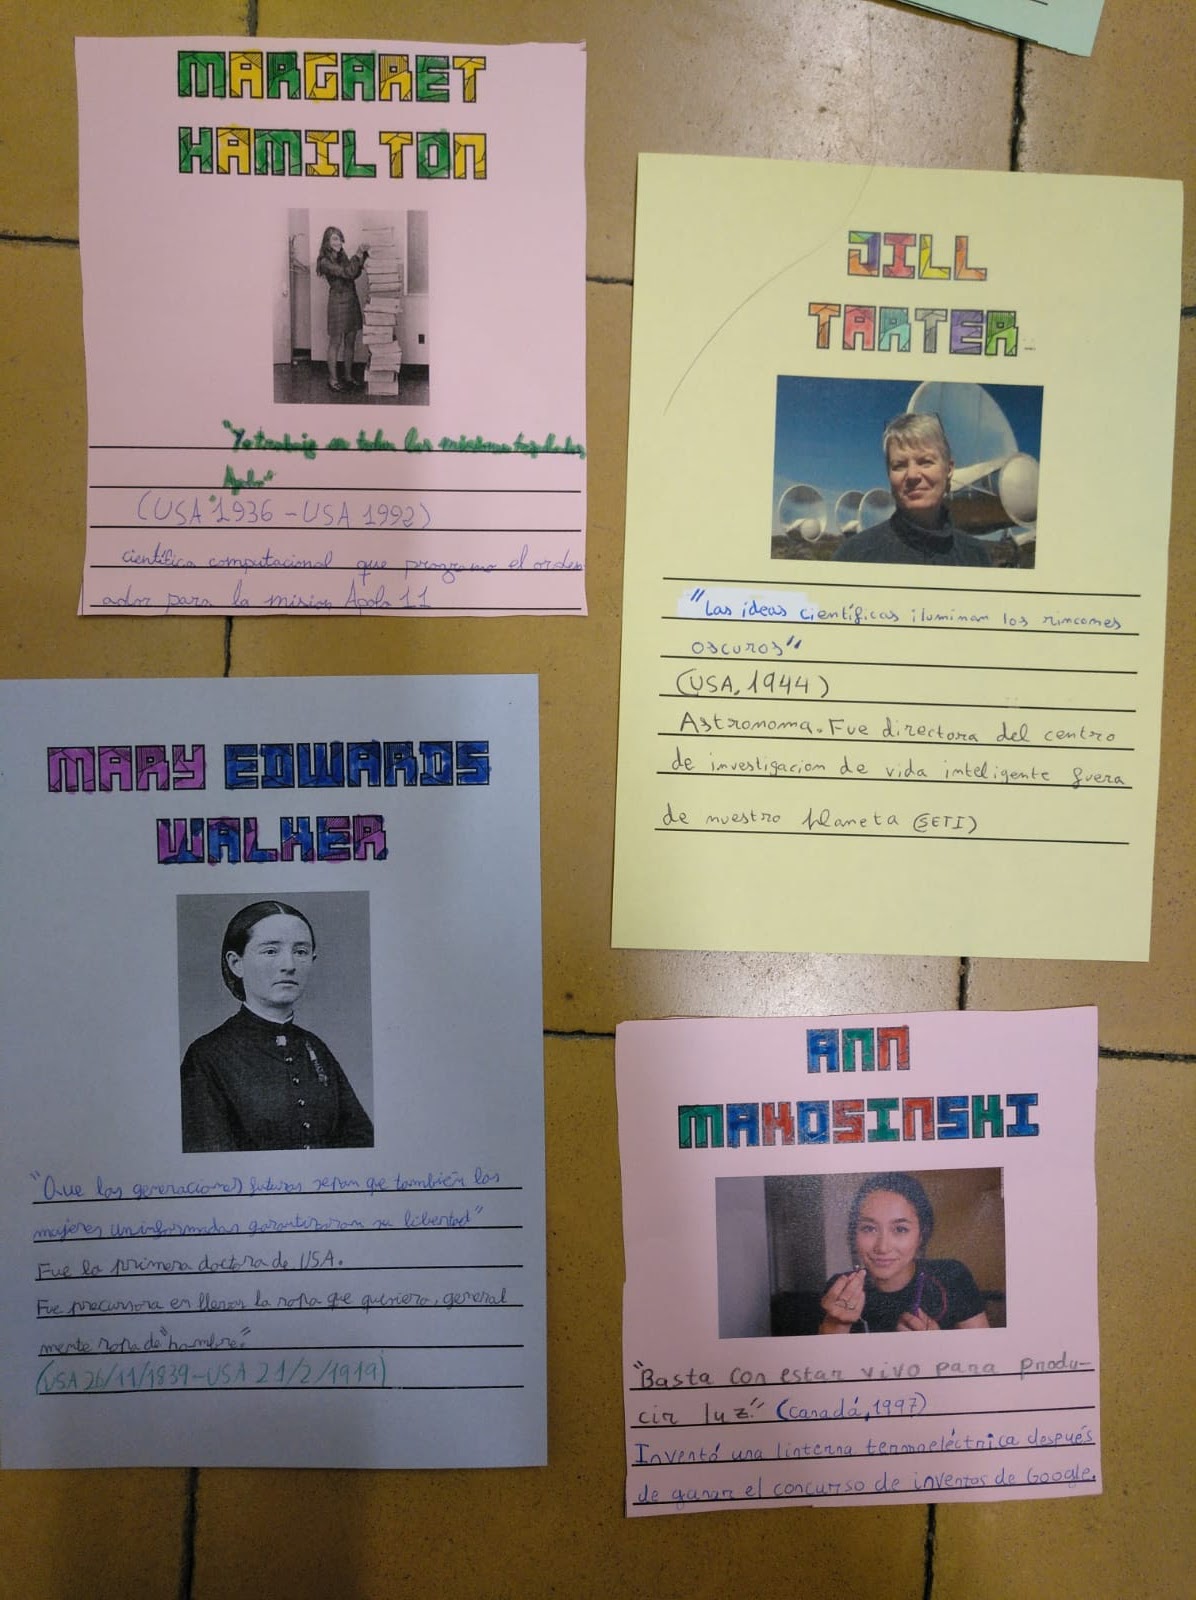 MARGARET
HAMILTON
"Yo trabajé en todas las misiones tripuladas
Apolo"
(USA 1936 - USA 1992)
científica computacional que programo el orden
ador para la mision Apolo 11
JILL
TARTER
"Las ideas científicas iluminan los rincones
oscuros"
(USA, 1944)
Astronoma. Fue directora del centro
de investigacion de vida inteligente fuera
de nuestro planeta (SETI)
MARY EDWARDS
WALKER
"Que las generaciones futuras sepan que también las
mujeres uninformadas garantizaron su libertad"
Fue la primera doctora de USA.
Fue precursora en llevar la ropa que quisiera, general
mente ropa de "hombre."
(USA 26/11/1839 - USA 21/2/1919)
ANN
MAKOSINSKI
"Basta con estar vivo para produ-
cir luz" (Canadá, 1997)
Inventó una linterna termoeléctrica después
de ganar el concurso de inventos de Google.